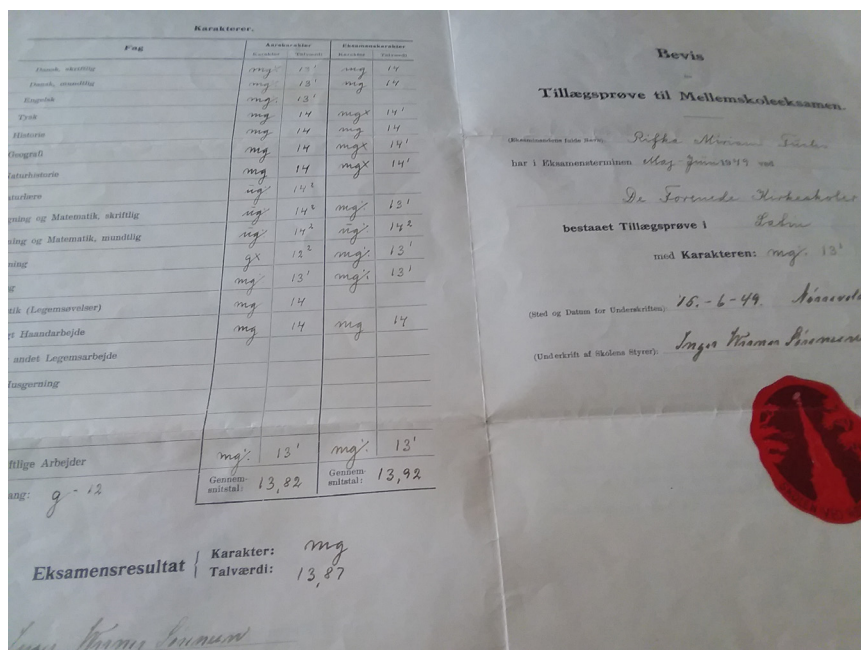 Karakterer.
Fag
Aarskarakter Eksamenskarakter
Karakter Talværdi Karakter Talværdi
Dansk, skriftlig mg÷ 13¹ mg 14
Dansk, mundtlig mg 13¹ mg 14
Engelsk mg÷ 13¹
Tysk mg 14 mgx 14¹
Historie mg 14 mg 14
Geografi mg 14 mgx 14¹
Naturhistorie mg 14 mgx 14¹
aturlære ug÷ 14²
gning og Matematik, skriftlig ug÷ 14² mg÷ 13¹
ning og Matematik, mundtlig ug÷ 14² ug÷ 14²
ning gx 12² mg÷ 13¹
g mg÷ 13¹ mg÷ 13¹
tik (Legemsøvelser) mg 14
gt Haandarbejde mg 14 mg 14
r andet Legemsarbejde
Husgerning
ftlige Arbejder mg÷ 13¹ mg÷ 13¹
Gennemsnitstal: 13,82 Gennemsnitstal: 13,92
ang: g - 12
Eksamensresultat
Karakter: mg
Talværdi: 13,87
Inger Sørensen
Bevis
for
Tillægsprøve til Mellemskoleeksamen.
(Eksaminandens fulde Navn) Rifka Miriam
har i Eksamensterminen Maj-Juni 1949 ved
De Forenede Kirkeskoler
bestaaet Tillægsprøve i Latin
med Karakteren: mg÷ 13¹
(Sted og Datum for Underskriften): 16.-6-49.
(Underskrift af Skolens Styrer): Inger